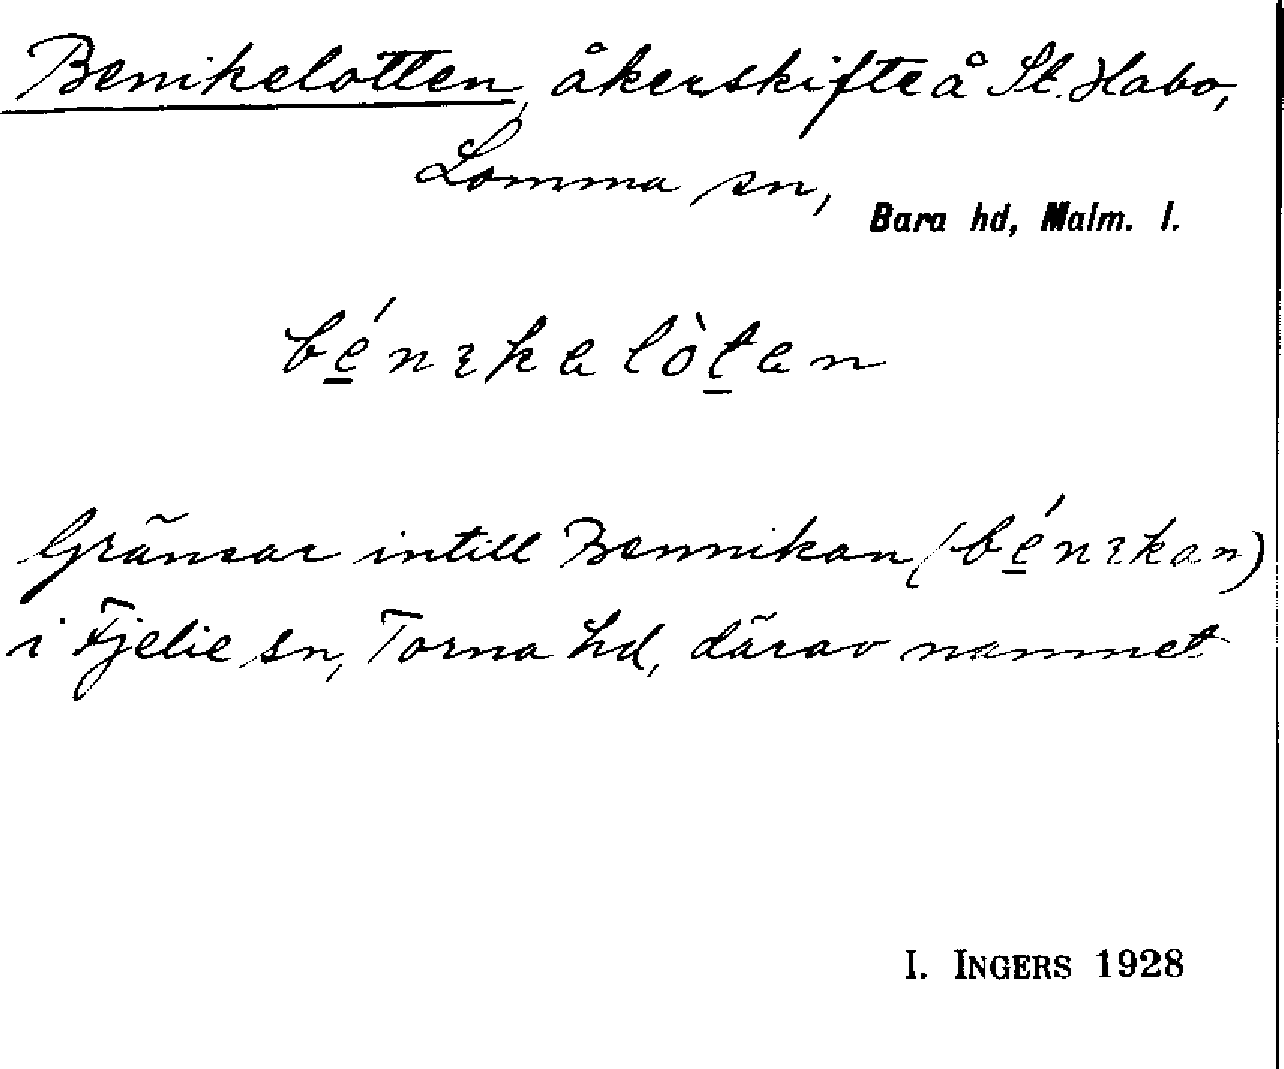 Benikelotten, åkerskifte å St. Habo,
Lomma sn,
Bara hd, Malm. l.
bé̱nɪkalòṯan
Gränsar intill Bennikan (bé̱nɪkan)
i Fjelie sn, Torna hd, därav namnet
I. INGERS 1928